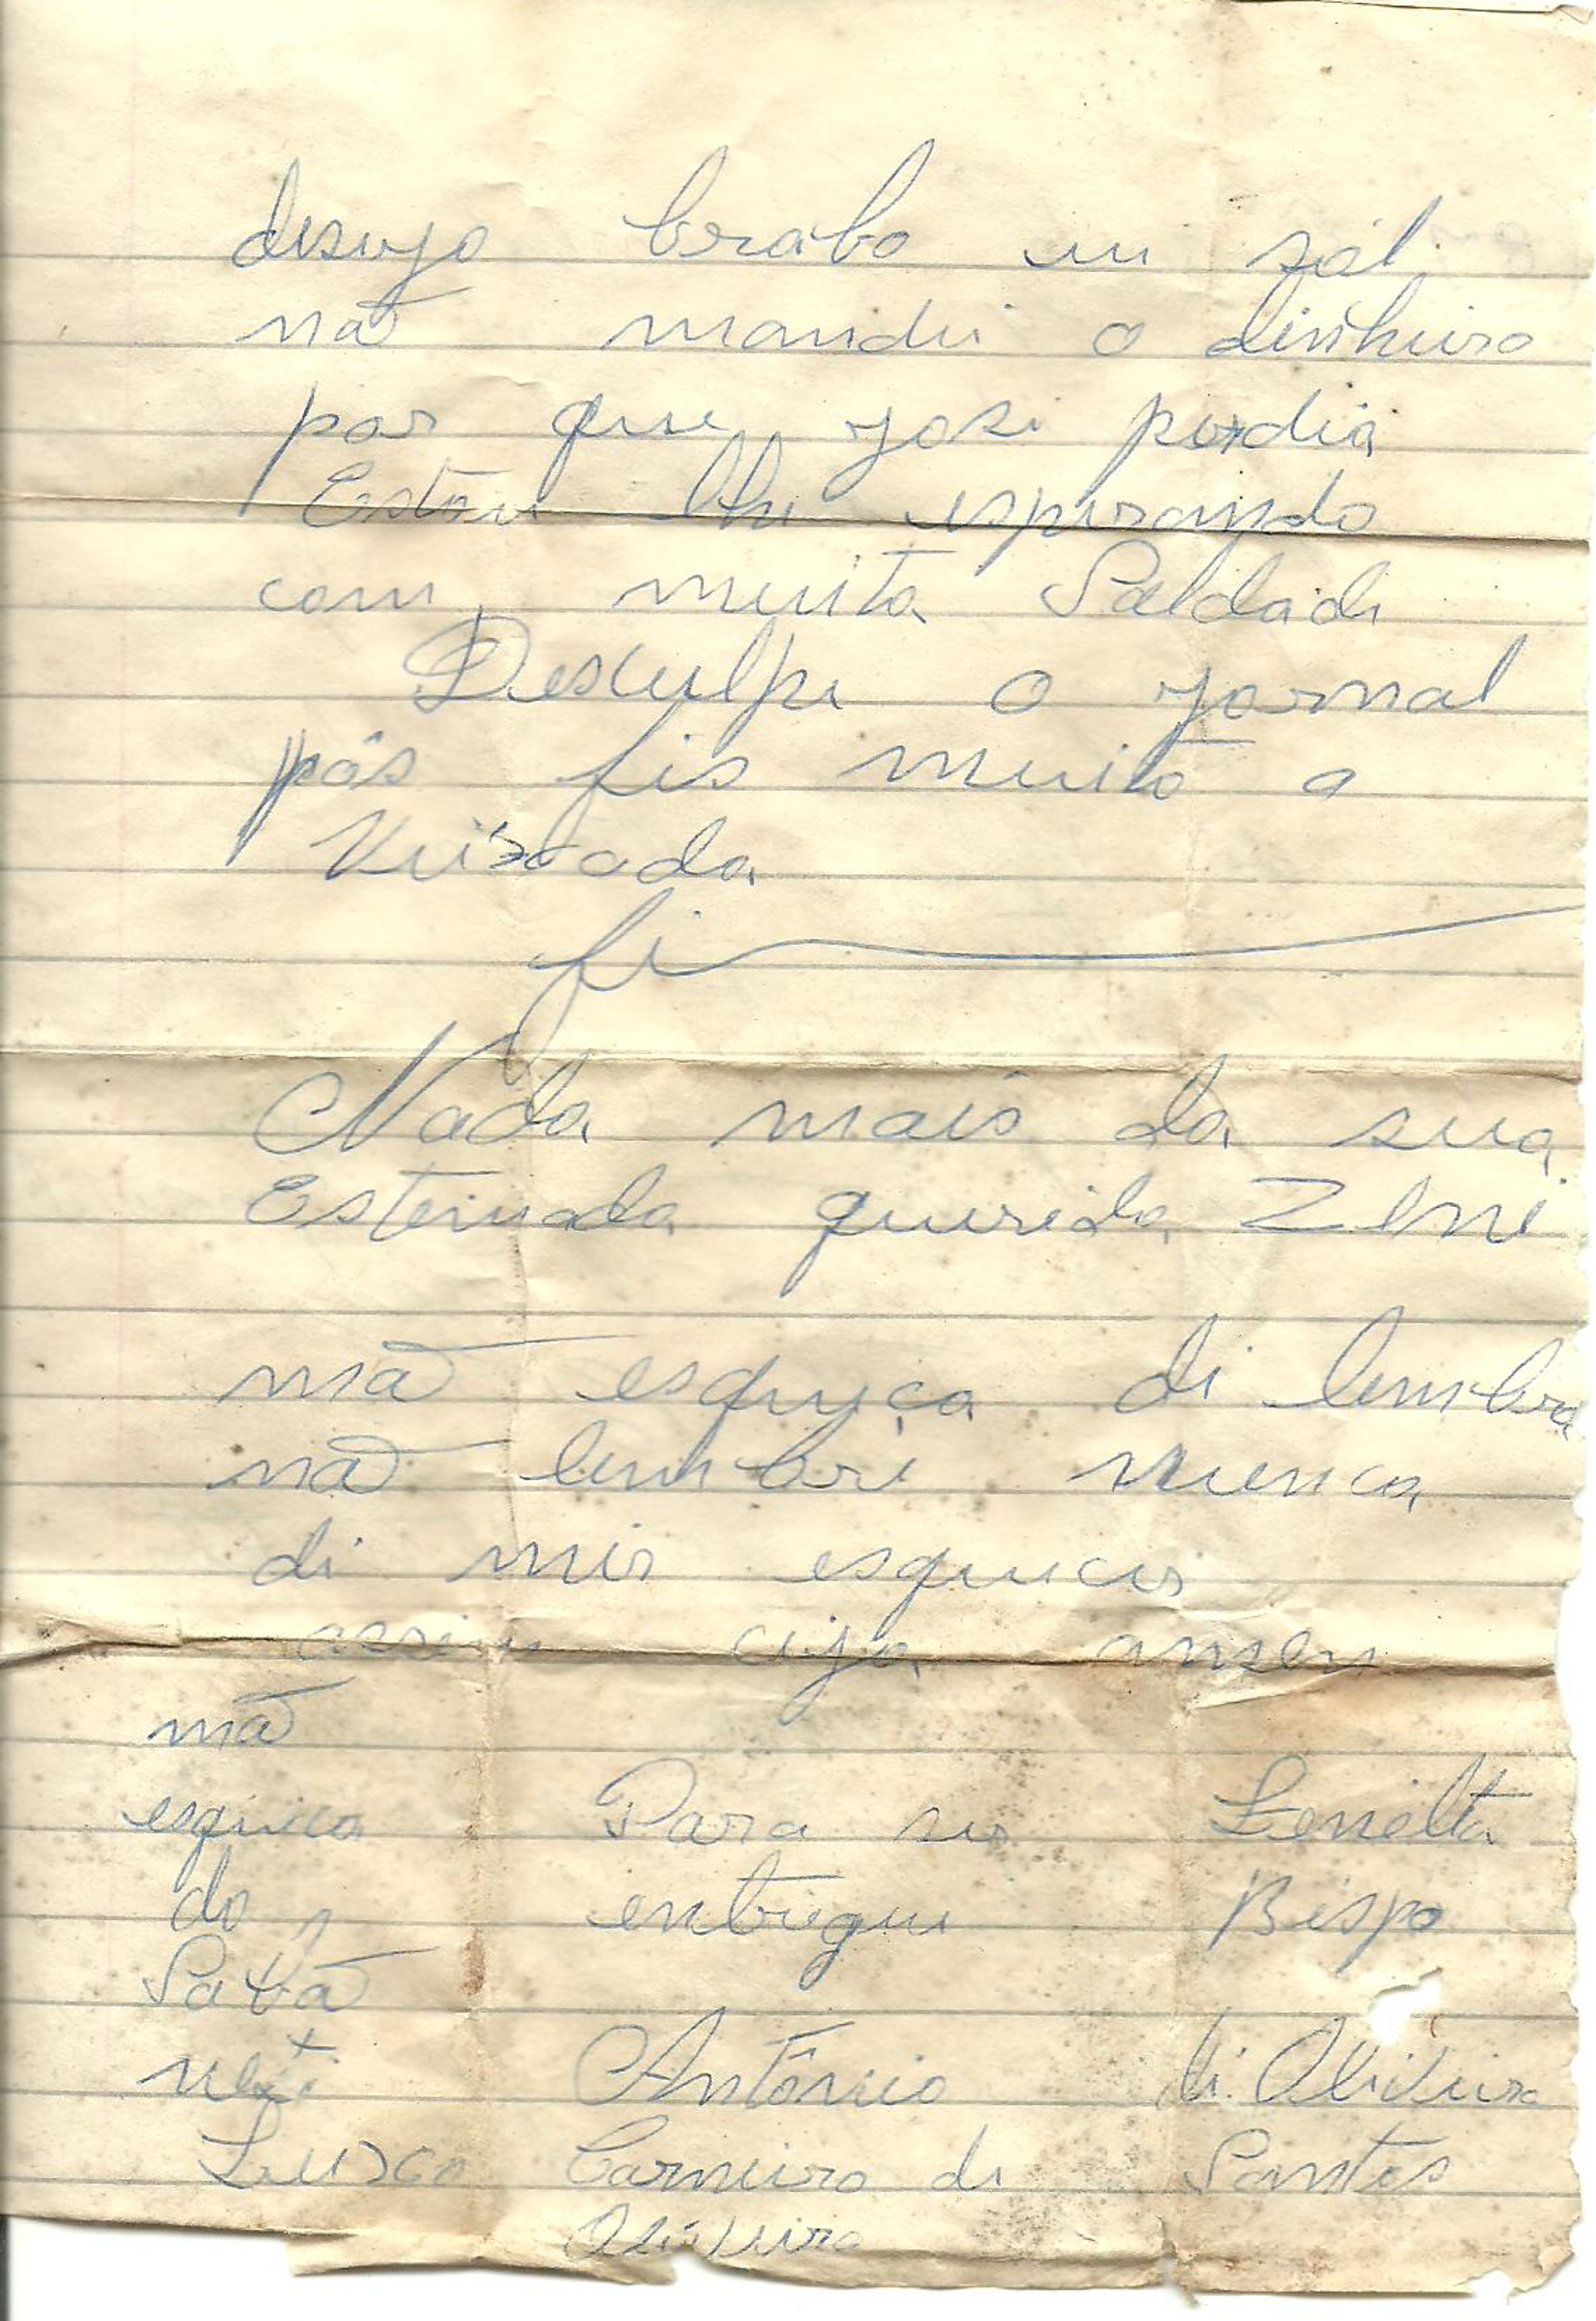 desejo brabo eu sol
nã mandei o dinheiro
por que josi perdia
Estou lhi esperando
com muita Saldadi
Desculpi o jornal
pôs fis muito a
fi
Nada mais da sua
Estimada querida Zeni
nã esqueça di lembra
nã lembri nunca
di mir esquecer
assim cija amen
nã
esqueica
do
Para ser
entregui
Antônio
Carneiro di
Oliveira
Zenelta
Bispo
di Oliveira
Santos